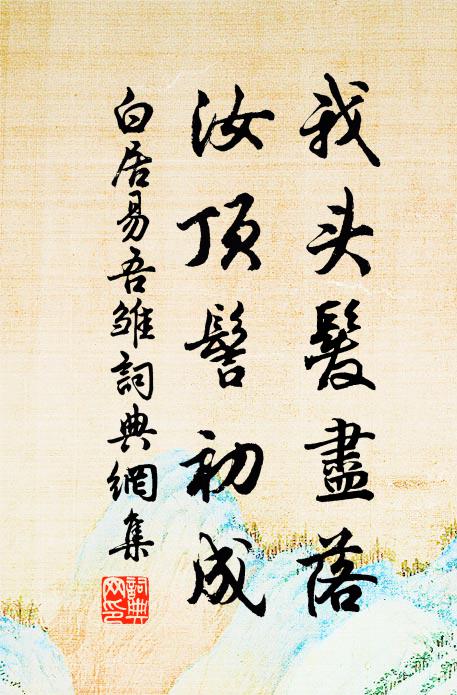 我头髮盡落
汝頂髻初成
白居易吾雛詞典網集
詞典